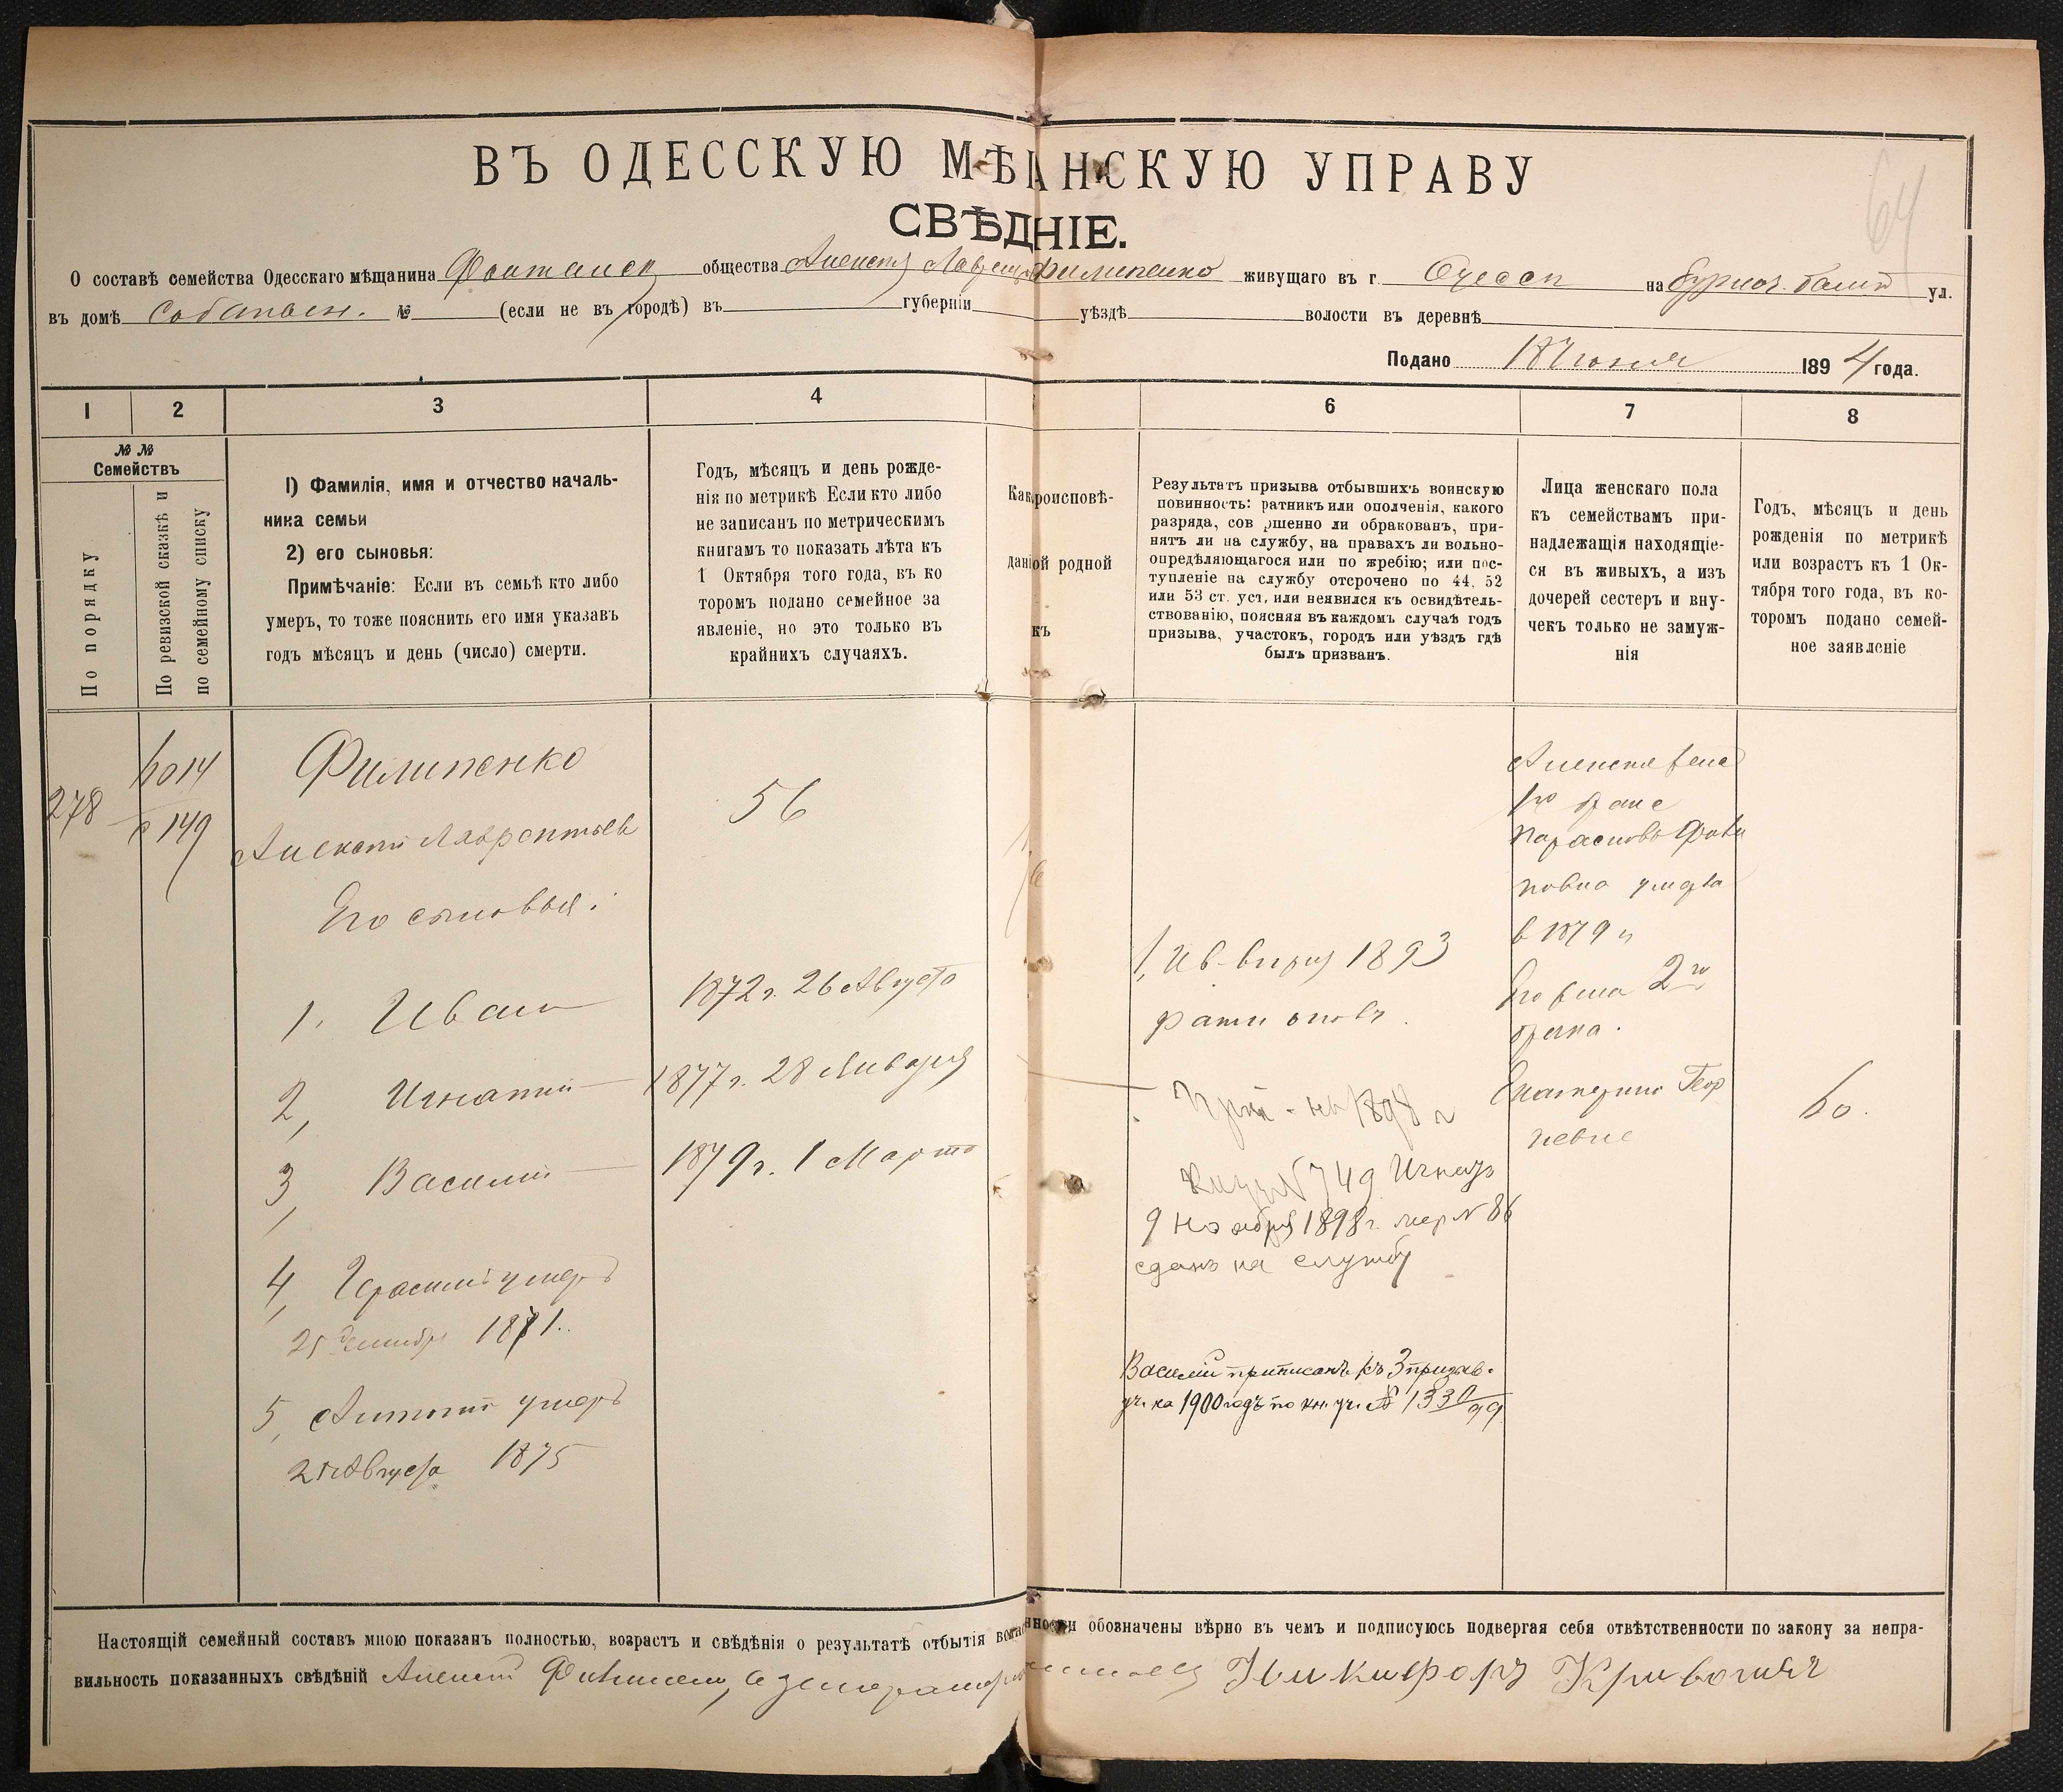 64
ВЪ ОДЕССКУЮ МѢАНСКУЮ УПРАВУ
СВѢДНІЕ.
О составѣ семейства Одесскаго мѣщанина Фонтанск общества Алексѣя Лаврент Филипенко живущаго въ г. Одессѣ на ул.
въ домѣ № (если не въ городѣ) въ губерніи уѣздѣ волости въ деревнѣ
Подано 18 Июня 1894 года.
1 2 3 4 6 7 8
№ № Семействъ
По порядку
По ревизской сказкѣ и
по семейному списку
1) Фамилія, имя и отчество началь-
ника семьи
2) его сыновья:
Примѣчаніе: Если въ семьѣ кто либо
умеръ, то тоже пояснить его имя указавъ
годъ мѣсяцъ и день (число) смерти.
Годъ, мѣсяцъ и день рожде-
нія по метрикѣ Если кто либо
не записанъ по метрическимъ
книгамъ то показать лѣта къ
1 Октября того года, въ ко
торомъ подано семейное за
явленіе, но это только въ
крайнихъ случаяхъ.
Как роисповѣ-
даніой родной
къ
Результатъ призыва отбывшихъ воинскую
повинность: ратникъ или ополченія, какого
разряда, сов ршенно ли обракованъ, при-
нятъ ли на службу, на правахъ ли вольно-
опредѣляющагося или по жребію; или пос-
тупленіе на службу отсрочено по 44, 52
или 53 ст. уст, или неявился къ освидѣтель-
ствованію, поясняя въ каждомъ случаѣ годъ
призыва, участокъ, городъ или уѣздъ гдѣ
былъ призванъ.
Лица женскаго пола
къ семействамъ при-
надлежащія находящіе-
ся въ живыхъ, а изъ
дочерей сестеръ и вну-
чекъ только не замуж-
нія
Годъ, мѣсяцъ и день
рожденія по метрикѣ
или возрастъ къ 1 Ок-
тября того года, въ ко-
торомъ подано семей-
ное заявленіе
278
149
Филипенко
Алексѣй Лаврентьевъ
56
Его сыновья:
1, Иванъ 1872 г. 26 Августа
2, Игнатій 1877 г. 28 Января
3, Василій 1879 г. 1 Марта
4, Герасимъ умеръ
25 1871.
5, Антоній умеръ
Августа 1875
1, Ив 1893
ратн опол
1898 г
№ 749
9 Ноября 1898 г. № 86
сданъ на службу
Василій приписанъ къ 3 призыв.
уч. на 1900 годъ по кн. уч. № 1330/99
Алексѣя жена
1го брака
умерла
в 1879 г
Его жена 2го
брака.
Екатерина Геор
гіевна
60.
Настоящій семейный составъ мною показанъ полностью, возрастъ и свѣдѣнія о результатѣ отбытія воин нности обозначены вѣрно въ чемъ и подписуюсь подвергая себя отвѣтственности по закону за непра-
вильность показанныхъ свѣдѣній Алексѣй а Никифоръ